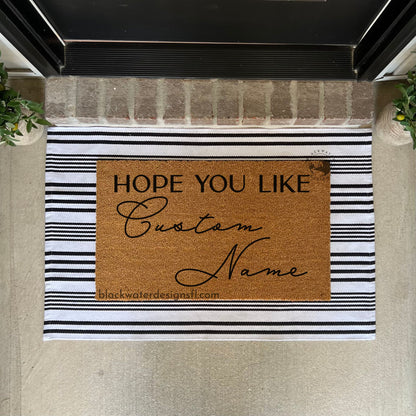 HOPE YOU LIKE
Custom
Name
blackwaterdesignsfl.com